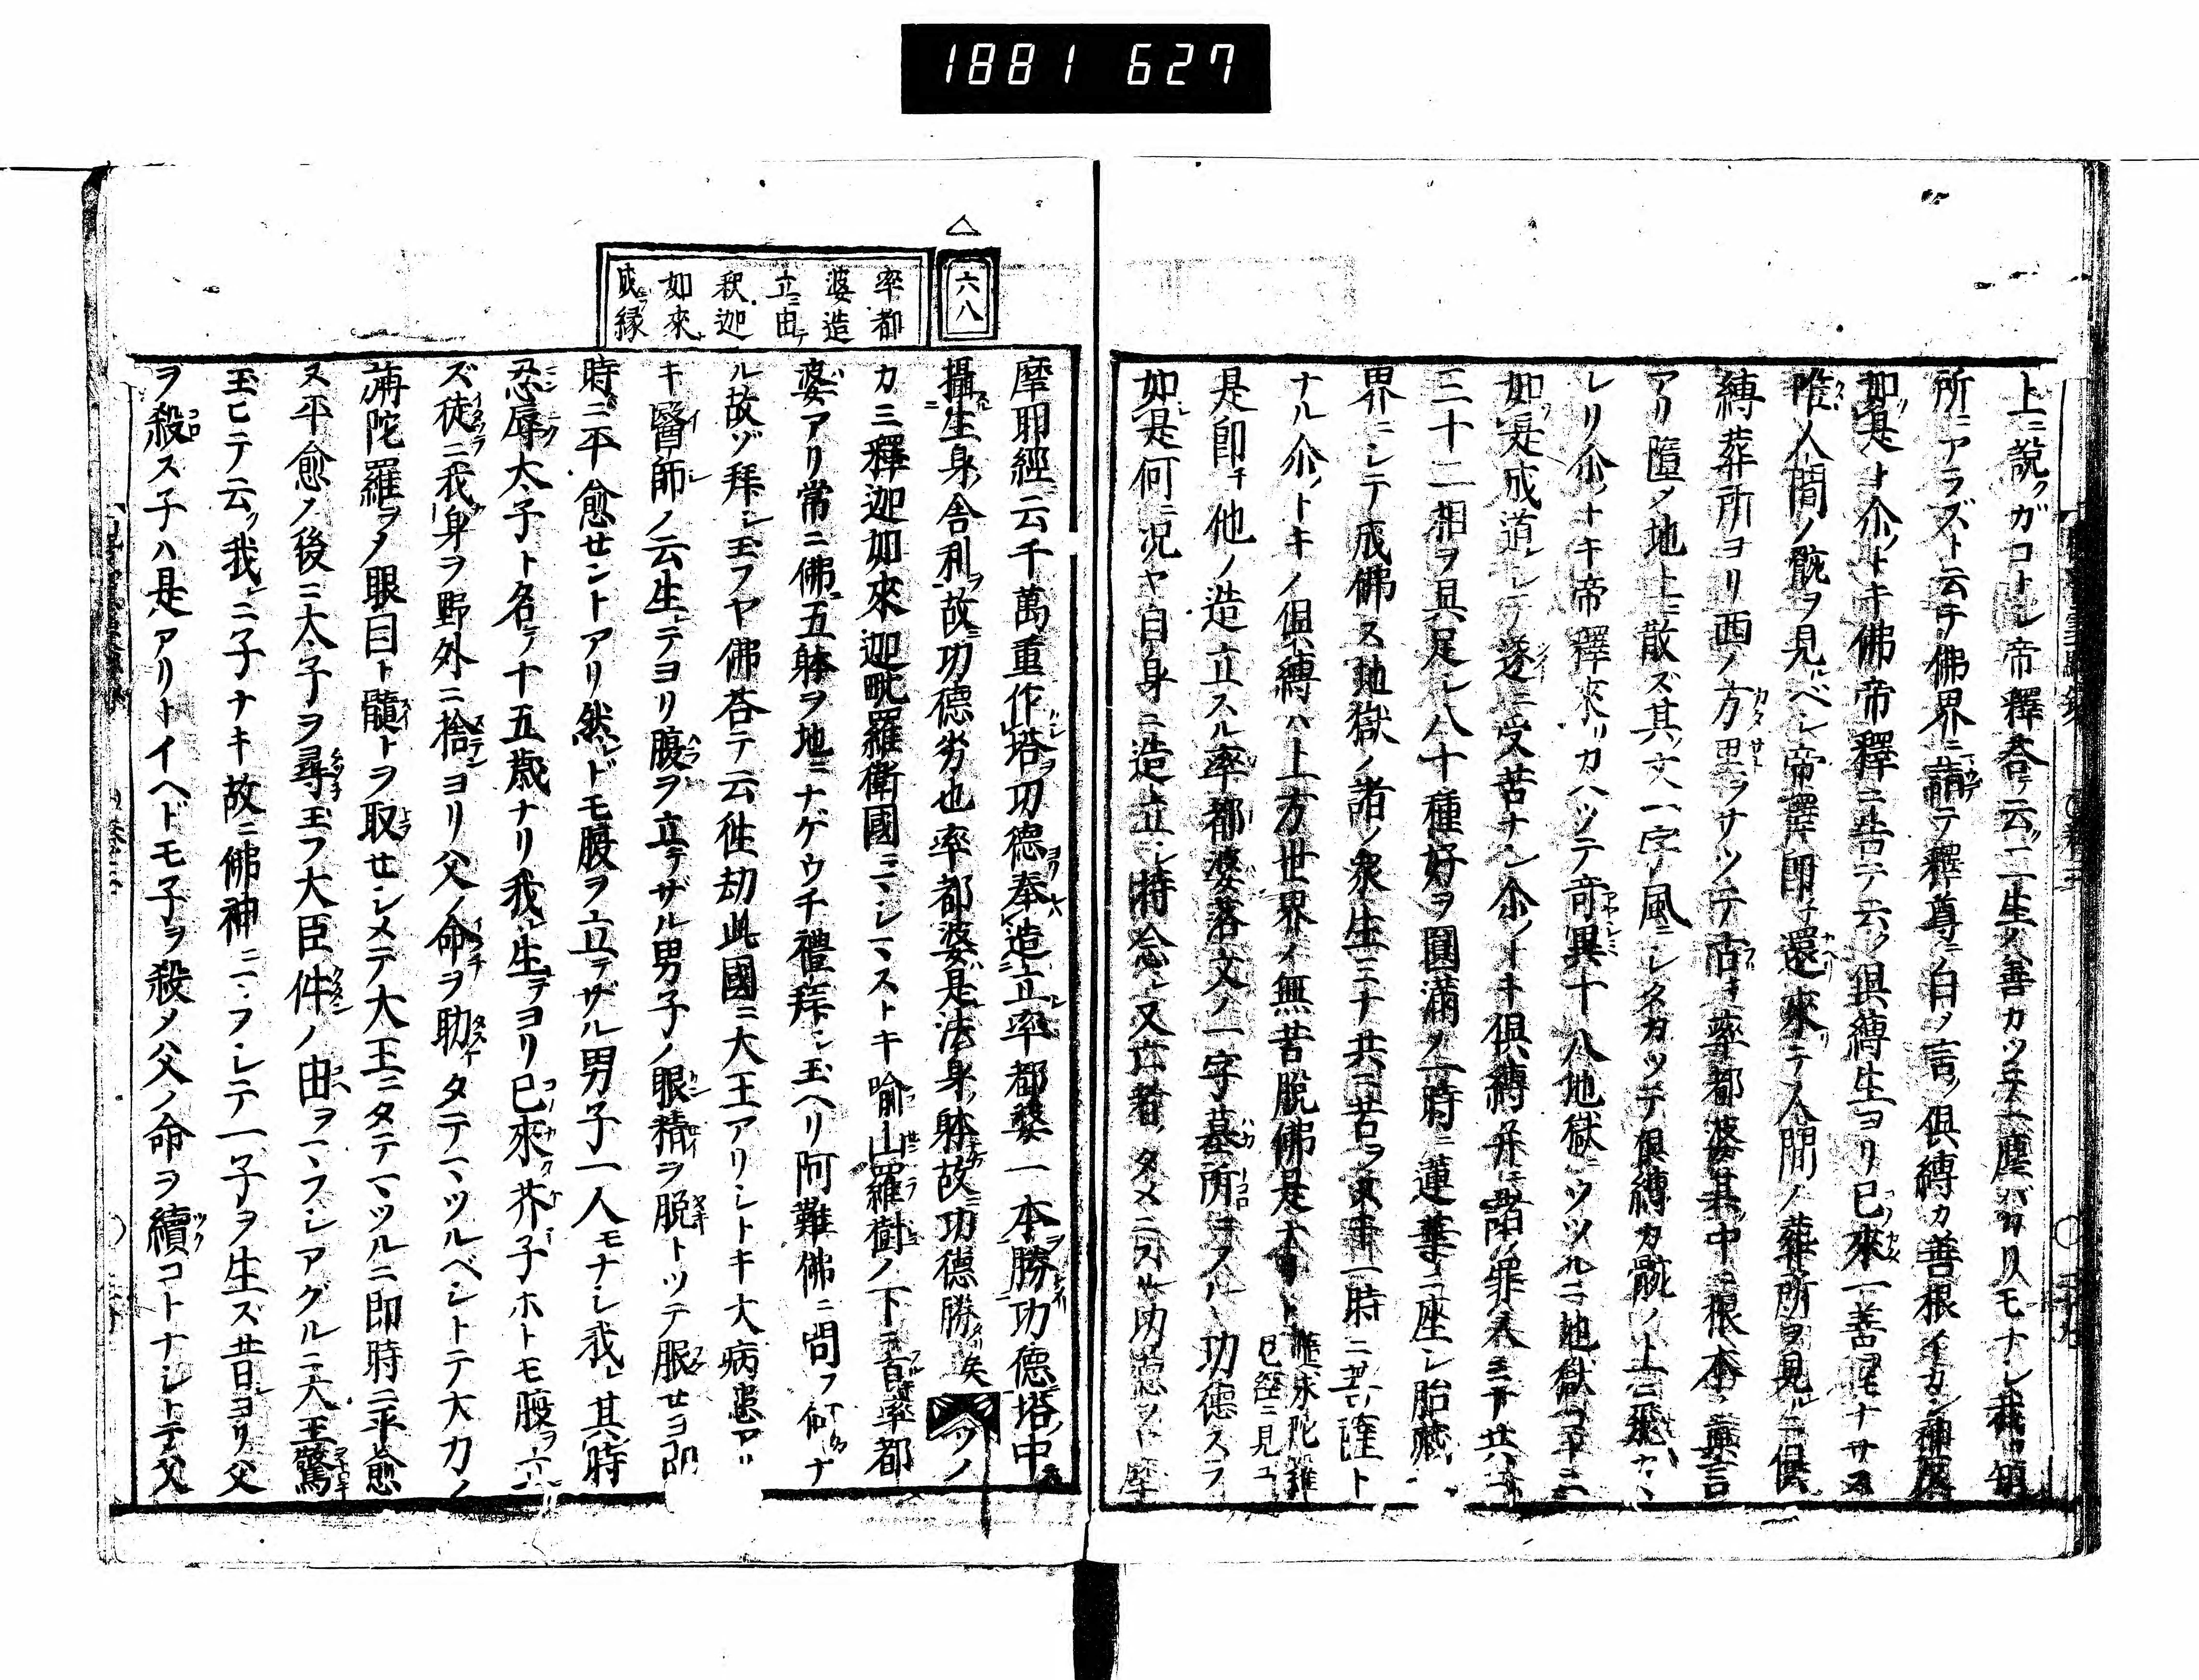 1881 627
上ニ說クガコトシ帝釋荅テ云ク一生ノ善カツテ一塵バカリモナシ我カ領
所ニアラズト云テ佛界ニ請テ釋尊ニ白メ言ク俱縛カ善根イカン神
如是ト尒トキ佛帝釋ニ告テ云ク俱縛生ヨリ已來一善ヲモナサス
唯人間ノ骸ヲ見ルベシ帝釋即チ還リ來テ人間ノ葬所ヲ見ルニ俱
縛葬所ヨリ西ノ方里ヲサツテ古キ率都婆其中ニ根本ノ真言
アリ墮メ地上ニ散ズ其ノ文一字風ニシタカツテ俱縛カ骸ノ上ニ飛カヽ
レリ尒トキ帝釋來リカハツテ竒異十八地獄ニウツルニ地獄コトニ
如是成道シテ遂ニ受苦ナシ尒トキ俱縛并ニ諸ノ罪人ミナ共ニ
三十二相ヲ具足シ八十種好ヲ圓滿メ一時ニ蓮華ニ座シ胎藏
界ニシテ成佛ス地獄ノ諸ノ衆生ミナ共ニ苦ヲヌキ一時ニ菩薩ト
ナル尒トキノ俱縛ハ上方世界ノ無苦脫佛是ナリト 雖求陀羅
已經ニ見ユ
是即チ他ノ造立スル率都婆落文ノ一字墓所ニフル功德スラ
如是何ニ況ヤ自身ニ造立シ持念シ又亡者ノタメニスル功德ヲヤ摩
六八
率都
婆造
立ニ由テ
釈迦
如來ト
成フ縁
摩耶經云千萬重作塔ヲ功德奉造立率都婆一本勝功德塔ノ中
攝生身舎利ヲ故ニ功德劣也率都婆是法身躰故ニ功德勝 矣 今ノ
カミ釋迦如來迦毗羅衛國ニマシマストキ喩山羅樹ノ下ニ百率都
婆アリ常ニ佛五躰ヲ地ニナゲウチ禮拜シ玉ヘリ阿難佛ニ問フ何ナ
ル故ゾ拜シ玉フヤ佛荅テ云徃劫此國ニ大王アリシトキ大病患アリ
キ醫師ノ云生テヨリ腹ヲ立テザル男子ノ眼精ヲ脫トツテ服セヨ即
時ニ平愈セントアリ然ドモ腹ヲ立テザル男子一人モナシ我レ其時
忍辱太子ト名テ十五歲ナリ我レ生テヨリ已來芥子ホトモ腹ヲ立
ズ徒ニ我身ヲ野外ニ捨ンヨリ父ノ命ヲ助タテマツルベシトテ大力ノ
旃陀羅ヲメ眼目ト髓トヲ取セシメテ大王ニタテマツルニ即時ニ平愈
ス平愈ノ後ニ太子ヲ尋玉フ大臣件ノ由ヲマフシアグルニ大王驚
玉ヒテ云ク我レニ子ナキ故ニ佛神ニマフシテ一子ヲ生ズ昔日ヨリ父
ヲ殺ス子ハ是アリトイヘドモ子ヲ殺メ父ノ命ヲ續コトナシトテ父